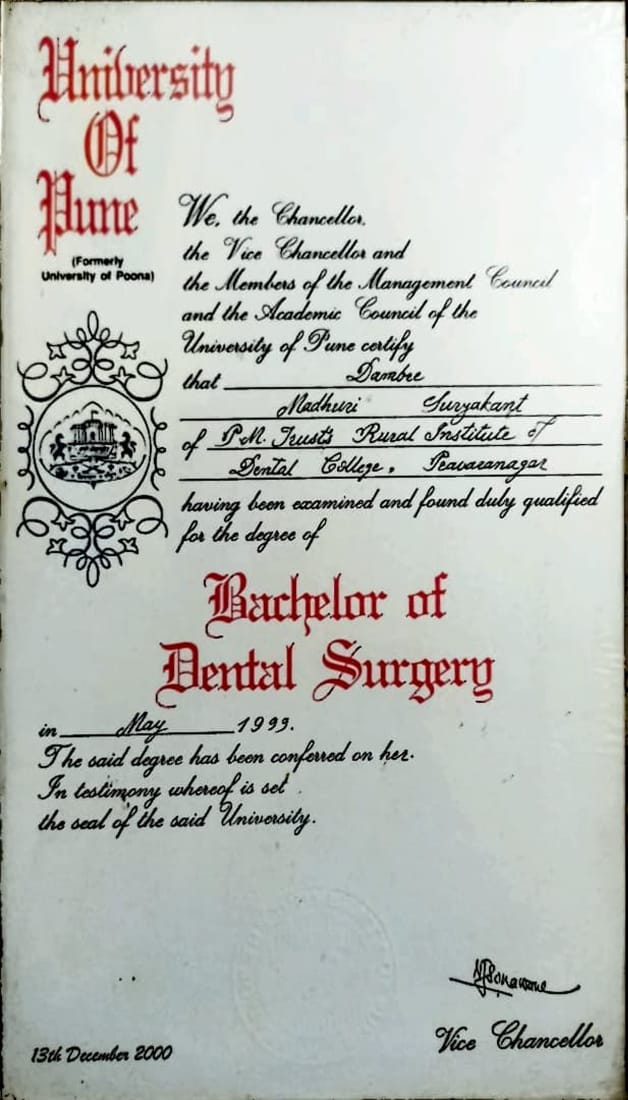 University
Of
Pune
(Formerly
University of Poona)
We, the Chancellor,
the Vice Chancellor and
the Members of the Management Council
and the Academic Council of the
University of Pune certify
that Dambre
Madhuri Suryakant
of P.M. Trust's Rural Institute of
Dental College, Pravaranagar
having been examined and found duly qualified
for the degree of
Bachelor of
Dental Surgery
in May 1999.
The said degree has been conferred on her.
In testimony whereof is set
the seal of the said University.
Vice Chancellor
13th December 2000